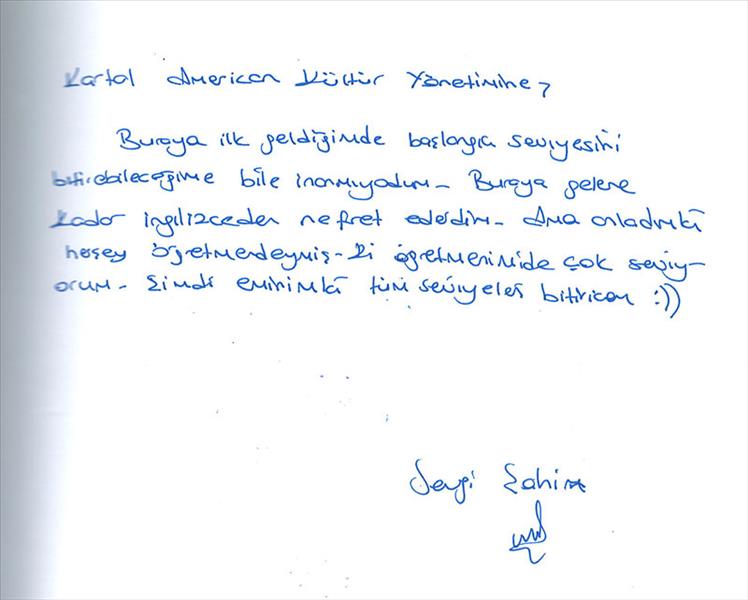 Kartal American Kültür Yönetimine,
Buraya ilk geldiğimde başlangıç seviyesini
bitirebileceğime bile inanmıyodum. Buraya gelene
kadar ingilizceden nefret ederdim. Ama anladımki
heşey öğretmendeymiş. Ki öğretmenimide çok seviy-
orum. Şimdi eminimki tüm seviyeleri bitiricem :))
Sevgi Şahin